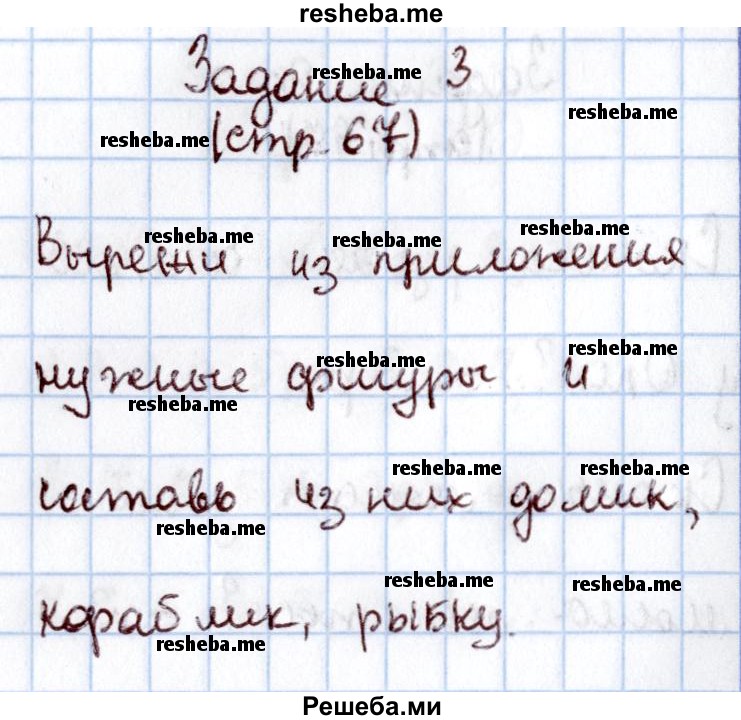 resheba.me
Задание 3
resheba.me
resheba.me
resheba.me
(стр. 67)
resheba.me
resheba.me
resheba.me
Вырежи из приложения
resheba.me
resheba.me
нужные фигуры и
resheba.me
resheba.me
resheba.me
составь из них домик,
resheba.me
resheba.me
resheba.me
кораблик, рыбку.
resheba.me
Решеба.ми